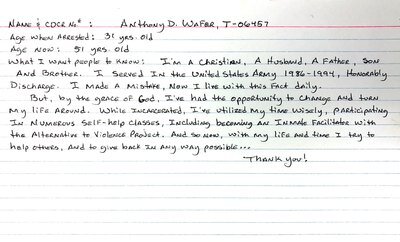 Name & CDCR No#: Anthony D. Wafer, T-06457
Age when arrested: 31 yrs. old
Age Now: 51 yrs. old
What I want people to know: I'm a Christian, A Husband, A Father, Son
And Brother. I Served In the United States Army 1986-1994, Honorably
Discharge. I Made a Mistake, Now I live with this Fact daily.
But, by the grace of God, I've had the opportunity to Change and turn
my life around. While incarcerated, I've utilized my time wisely, participating
In Numerous Self-help Classes, Including becoming an Inmate Facilitator with
the Alternative to Violence Project. And so now, with my life and time I try to
help others, and to give back in any way possible...
Thank you!